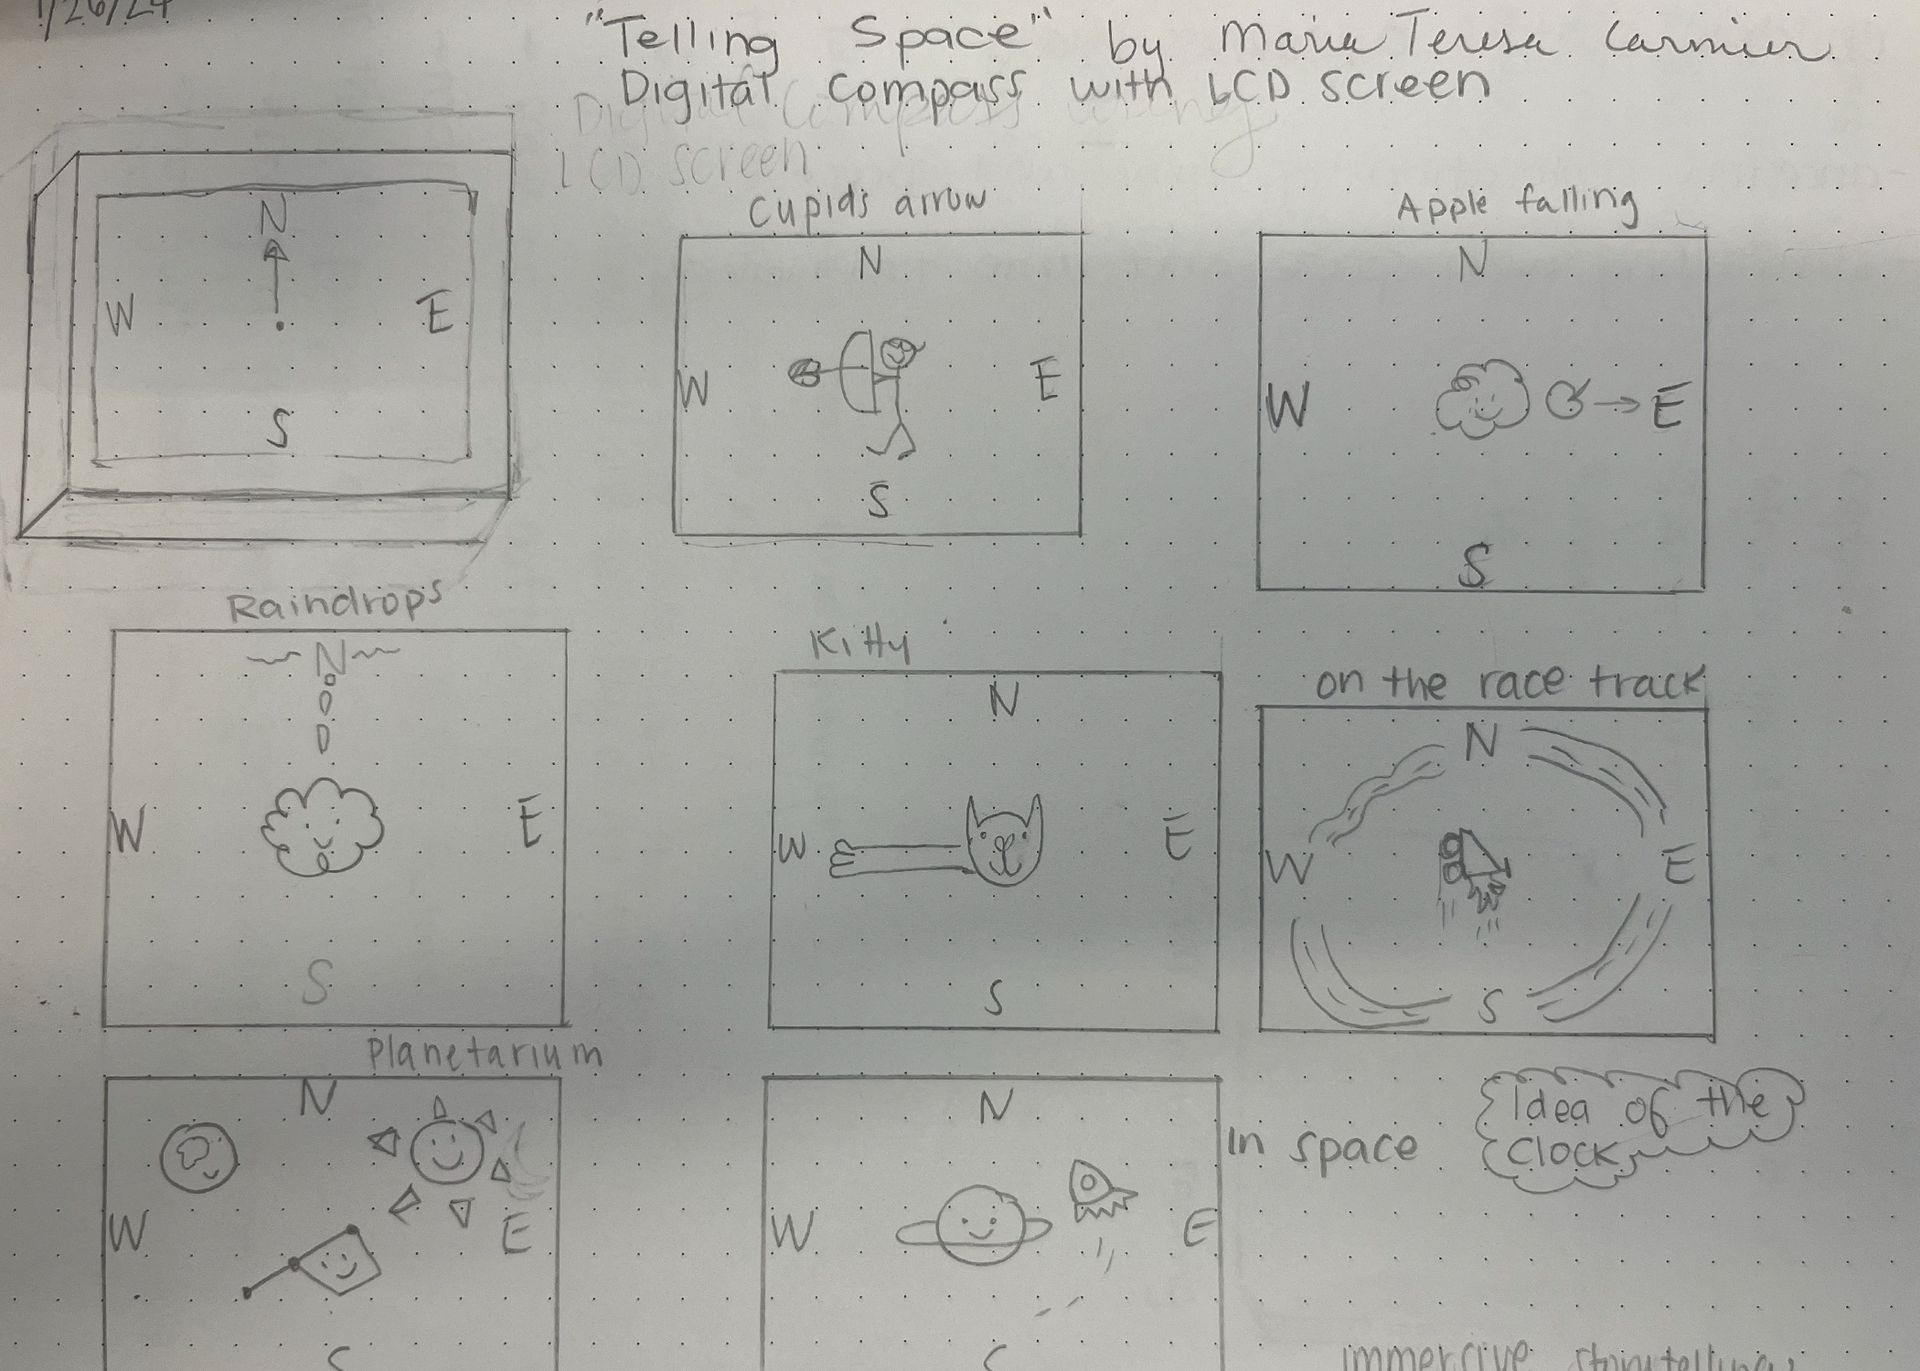 1/26/24
"Telling Space" by Maria Teresa Carmier
Digital Compass with LCD screen
Digital Compass
LCD screen
N
W E
S
Cupids arrow
N
W E
S
Apple falling
N
W E
S
Raindrops
N
W E
S
Kitty
N
W E
S
on the race track
N
W E
S
Planetarium
N
W E
S
N
W E
S
In space
Idea of the
Clock
immersive storytelling